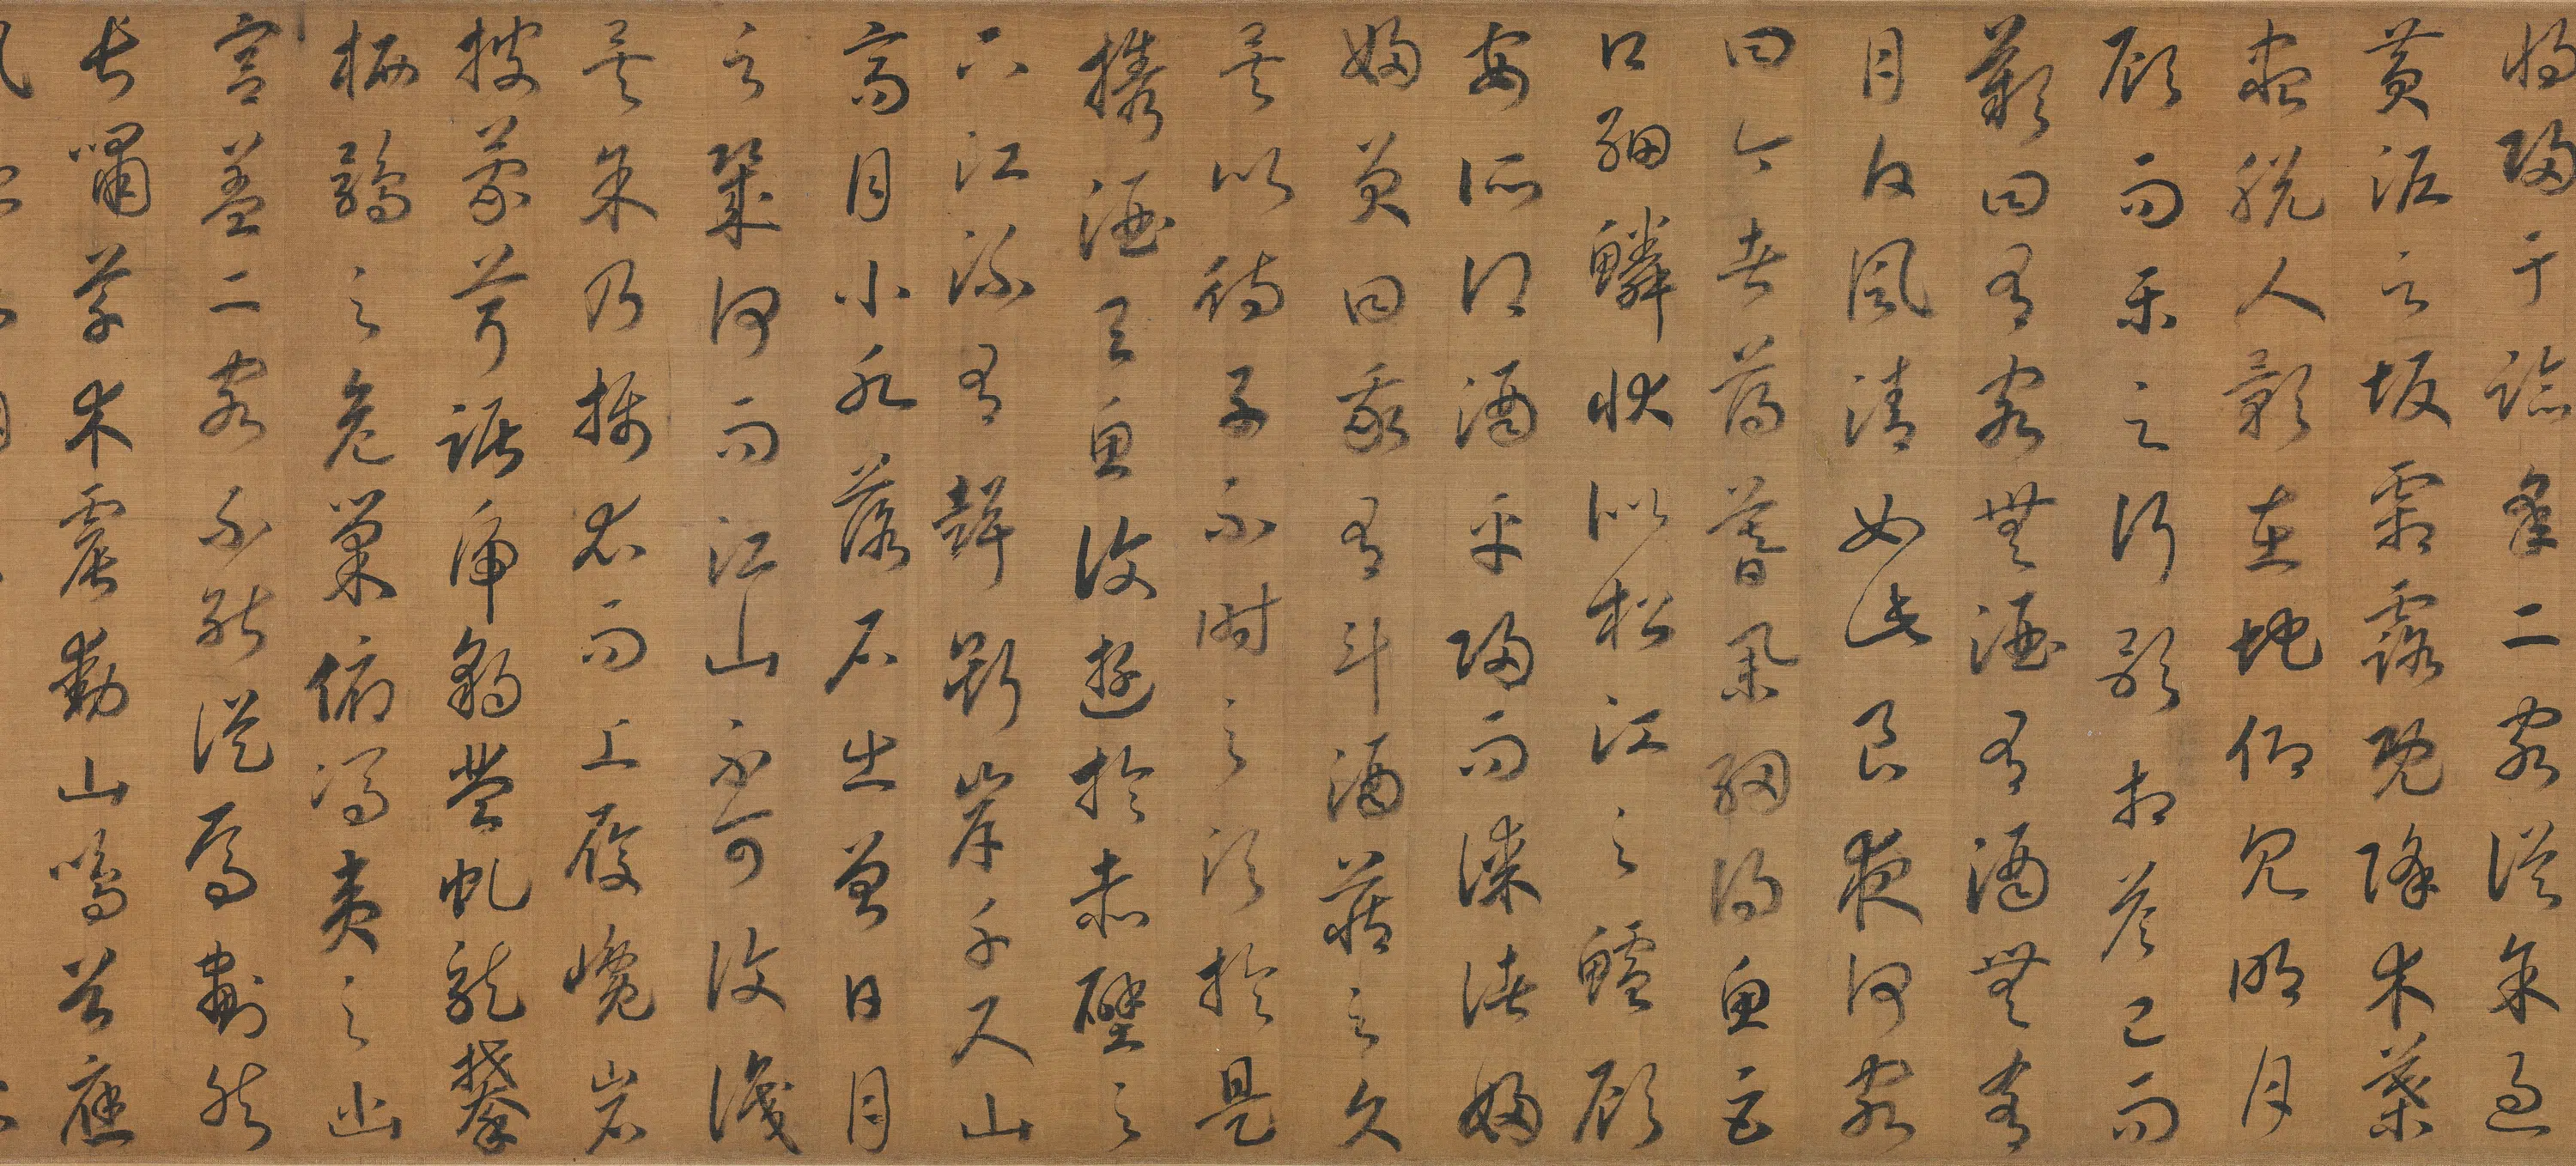 將歸于臨皋二客從余過
黃泥之坂霜露既降木葉
盡脫人影在地仰見明月
顧而樂之行歌相答已而
歎曰有客無酒有酒無肴
月白風清如此良夜何客
曰今者薄暮舉網得魚巨
口細鱗狀似松江之鱸顧
安所得酒乎歸而謀諸婦
婦笑曰我有斗酒藏之久
矣以待子不時之須於是
攜酒與魚復遊於赤壁之
下江流有聲斷岸千尺山
高月小水落石出曾日月
之幾何而江山不可復識
矣余乃攝衣而上履巉岩
披蒙茸踞虎豹登虬龍攀
栖鶻之危巢俯馮夷之幽
宮蓋二客不能從焉劃然
長嘯草木震動山鳴谷應